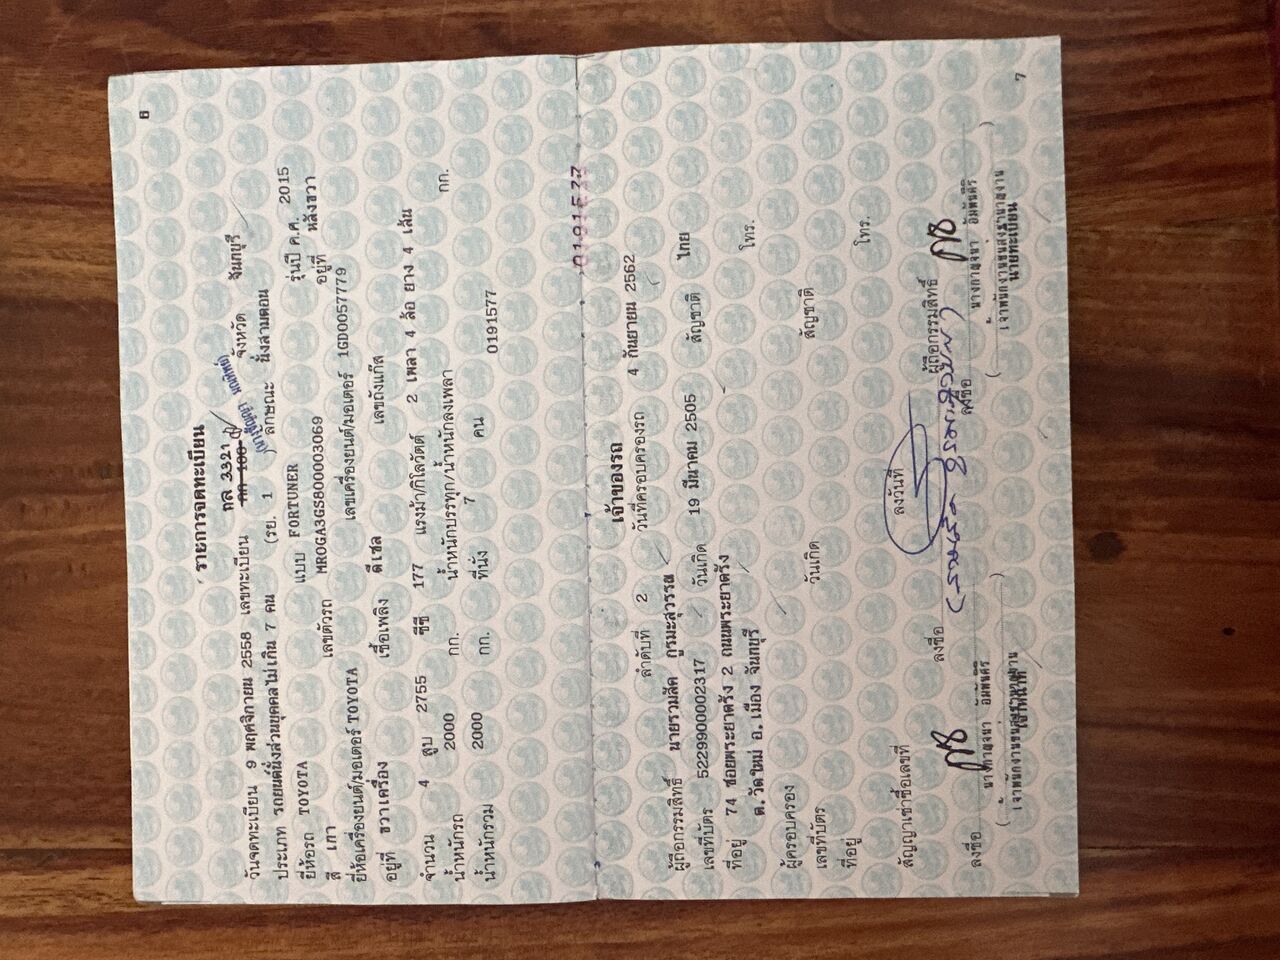 6
รายการจดทะเบียน
วันจดทะเบียน 9 พฤศจิกายน 2558 เลขทะเบียน กล 3321 กก 100 จังหวัด จันทบุรี
ประเภท รถยนต์นั่งส่วนบุคคลไม่เกิน 7 คน (รย. 1 ) ลักษณะ นั่งสามตอน
ยี่ห้อรถ TOYOTA แบบ FORTUNER รุ่นปี ค.ศ. 2015
สี เทา เลขตัวรถ MROGA3GS800003069 อยู่ที่ หลังขวา
ยี่ห้อเครื่องยนต์/มอเตอร์ TOYOTA เลขเครื่องยนต์/มอเตอร์ 1GD0057779
อยู่ที่ ขวาเครื่อง เชื้อเพลิง ดีเซล เลขถังแก๊ส
จำนวน 4 สูบ 2755 ซีซี 177 แรงม้า/กิโลวัตต์ 2 เพลา 4 ล้อ ยาง 4 เส้น
น้ำหนักรถ 2000 กก. น้ำหนักบรรทุก/น้ำหนักลงเพลา กก.
น้ำหนักรวม 2000 กก. ที่นั่ง 7 คน 0191577
0191577
เจ้าของรถ
ลำดับที่ 2 วันที่ครอบครองรถ 4 กันยายน 2562
ผู้ถือกรรมสิทธิ์ นายรามลัค กูรมะสุวรรณ
เลขที่บัตร 5229900002317 วันเกิด 19 มีนาคม 2505 สัญชาติ ไทย
ที่อยู่ 74 ซอยพระยาตรัง 2 ถนนพระยาตรัง โทร.
ต.วัดใหม่ อ.เมือง จันทบุรี
ผู้ครอบครอง
เลขที่บัตร วันเกิด สัญชาติ
ที่อยู่ โทร.
สัญญาเช่าซื้อเลขที่ ลงวันที่
ลงชื่อ ผู้ถือกรรมสิทธิ์
ลงชื่อ ลงชื่อ
นางกาญจนา อัมพันศิริ นางกาญจนา อัมพันศิริ
( เจ้าพนักงานขนส่งชำนาญงาน ) ( เจ้าพนักงานขนส่งชำนาญงาน )
เจ้าหน้าที่ นายทะเบียน
7